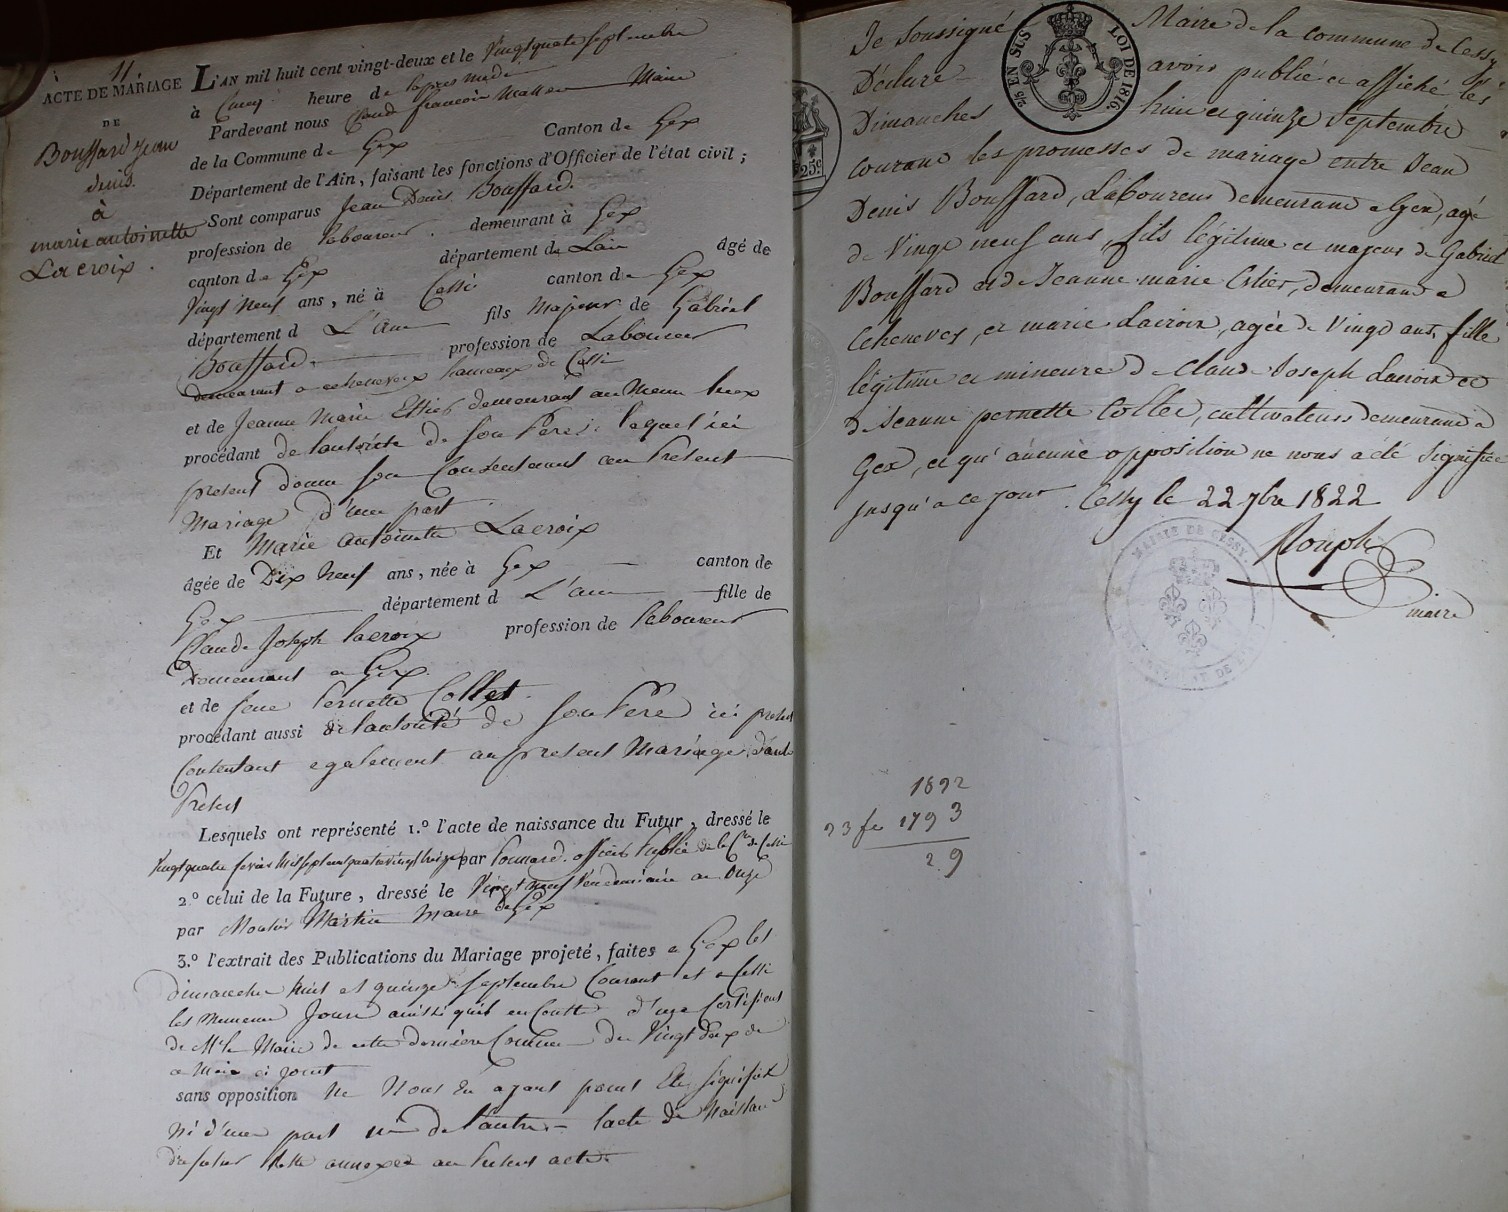 11
ACTE DE MARIAGE
DE
Bouffard jean
denis.
à
marie antoinette
Lacroix.
L'AN mil huit cent vingt-deux et le Vingtquatre septembre
à Cinq heure de lapres midi
Pardevant nous Claude francois Maire
de la Commune de Gex Canton de Gex
Département de l'Ain, faisant les fonctions d'Officier de l'état civil ;
Sont comparus Jean Denis Bouffard.
profession de laboureur. demeurant à Gex
canton de Gex département de Lain âgé de
Vingt neuf ans, né à Cessi canton de Gex
département d L'ain fils Majeur de Gabriel
Bouffard. profession de Laboureur
demeurant a echenevex hameaux de Cessi
et de Jeanne Marie demeurant au Meme lieux
procédant de lautorité de son Pere. lequel ici
present donne son Consentement au Present
Mariage d'une part
Et Marie antoinette Lacroix
âgée de Dix Neuf ans, née à Gex canton de
Gex département d L'ain fille de
Claude Joseph lacroix profession de laboureur
Demeurant a Gex.
et de Jene Pernette Collet.
procédant aussi de lautorité de son Pere ici present
Contentant egalement au present Mariage, d'autre
Present
Lesquels ont représenté 1.° l'acte de naissance du Futur, dressé le
Vingtquatre fevrier Mil sept cent quatre vingt treize par officier Public de la Cne de Cessi
2.° celui de la Future, dressé le Vingt neuf Vendemiaire an Onze
par Monsieur Martin Maire de Gex
3.° l'extrait des Publications du Mariage projeté, faites a Gex les
dimanche huit et quinze septembre Courant et a Cessi
les memeux Jours ainssi quil en Coutte d'une Certificat
de Mr le Maire de cette derniere Comune du Vingt deux du
a Mois ci joint
sans opposition Ne Nous En ayant point Ete signifiee
Ni d'une part ni de l'autre - lacte de Naissance
du futur Reste annexée au Present acte.
Je soussigné Maire de la commune de Cessy
Déclare avoir publié et affiché les
Dimanches huit et quinze Septembre
courant les promesses de mariage entre Jean
Denis Bouffard, Laboureur demeurant a Gex, agé
de Vingt neuf ans, fils légitime et majeur de Gabriel
Bouffard et de Jeanne marie demeurant a
Echenevex, et marie Lacroix, agée de Vingt ans, fille
légitime et mineure de Claude Joseph Lacroix et
de Jeanne pernette Collet, cultivateurs demeurant à
Gex, et qu'aucune opposition ne nous a été Signifiée
jusqu'a ce jour. Cessy le 22 7bre 1822
maire
EN SUS
LOI DE 1816.
25c
MAIRIE DE CESSY
1822
23 fe 1793
29